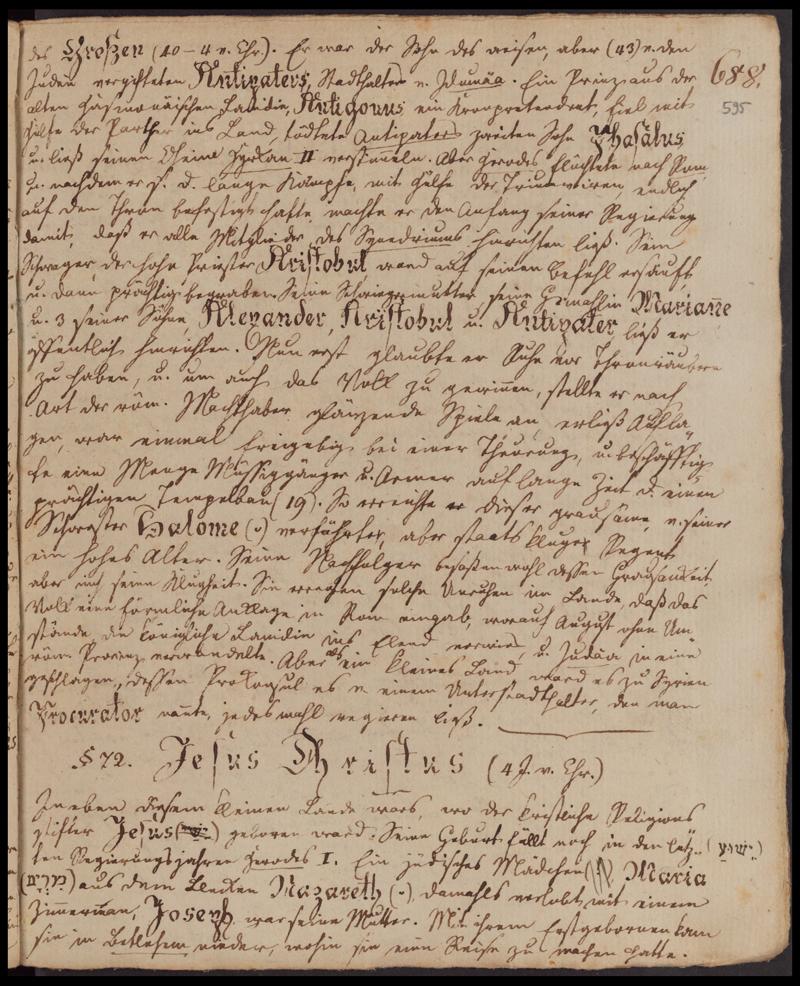 des Großen (40–4 v. Chr.). Er war der Sohn des weisen, aber (43) v. den
688.
Juden vergifteten Antipaters, Stadthalters v. Idumäa. Ein Prinz aus der
595
alten hasmonäischen Familie, Antigonus, ein Kronpretendent, fiel mit
Hilfe der Parther ins Land, tödtete Antipaters zweiten Sohn Phasälus,
u. ließ seinen Oheim Hyrkan II verstümeln. Aber Herodes flüchtete nach Rom,
u. nachdem er s. d. lange Kämpfe, mit Hülfe der Triumviren, endlich
auf den Thron befestigt hatte, machte er den Anfang seiner Regierung
damit, daß er alle Mitglieder des Synedriums hinrichten ließ. Sein
Schwager, der hohe Priester Aristobul ward auf seinen Befehl ersäuft,
u. dann prächtig begraben. Seine Schwiegermutter, seine Gemahlin Mariane
u. 3 seiner Söhne, Alexander, Aristobul u. Antipater ließ er
öffentlich hinrichten. Nun erst glaubte er Ruhe vor Thronräubern
zu haben, u. um auch das Volk zu gewinnen, stellte er nach
Art der röm. Machthaber glänzende Spiele an, erließ Aufla-
gen, war einmal freigebig bei einer Theurung, u. beschäftig-
te eine Menge Müssiggänger u. Armer auf lange Zeit d. einen
prächtigen Tempelbau (19). So erreichte er dieser grausame, v. seiner
Schwester Salome (·) verführter, aber staatskluger Regent
ein hohes Alter. Seine Nachfolger besaßen wohl dessen Grausamkeit,
aber nicht seine Klugheit. Sie erregten solche Unruhen im Lande, daß das
Volk eine förmliche Anklage in Rom eingab, worauf August ohne Um-
stände, die königliche Familie ins Elend verwies, u. Judäa in eine
röm. Provinz verwandelte. Aber als ein kleines Land ward es zu Syrien
geschlagen, dessen Prokonsul es v. einem Unterstadthalter, den man
Procurator nannte, jedesmahl regieren ließ.
§ 72. Jesus Christus (4 J. v. Chr.)
In eben diesem kleinen Lande wars, wo der kristliche Religions
stifter Jesus geboren ward. Seine Geburt fällt noch in den letz- (ישוע)
ten Regierungsjahren Herodes I. Ein jüdisches Mädchen Maria
(מרים) aus dem Flecken Nazareth (·), damahls verlobt mit einem
Zimmerman, Joseph, war seine Mutter. Mit ihrem Erstgebornen kam
sie in Betlehem nieder, wohin sie eine Reise zu machen hatte.